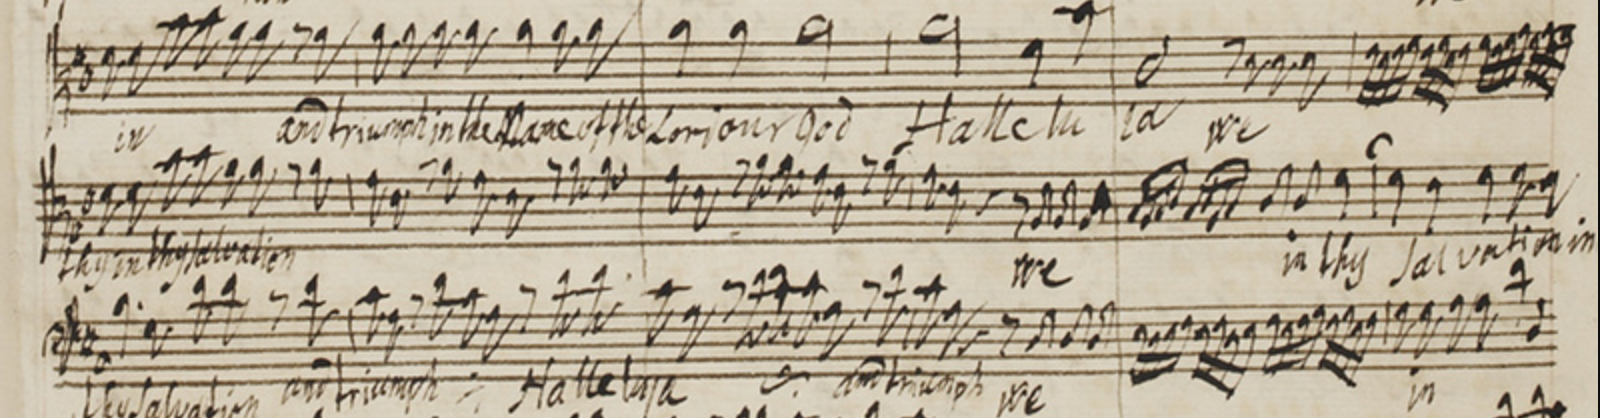 in and triumph in the Name of the Loriour God Hallelu ia we
thy in thy salvation we in thy salvation in
thy salvation and triumph Halleluja and triumph we in